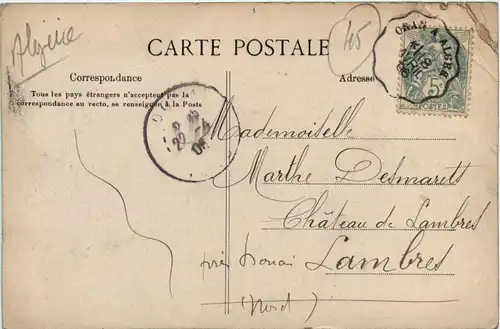 Algérie
45
CARTE POSTALE
ORAN A ALGER
Correspondance
Adresse
Tous les pays étrangers n'acceptent pas la
correspondance au recto, se renseigner à la Poste
Mademoiselle
Marthe Desmarett
Château de Lambres
près Douai Lambres
(Nord)
5
POSTES